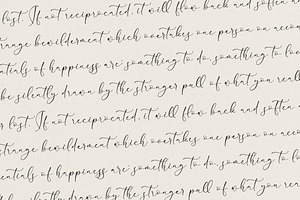 lost. If not reciprocated, it will flow back and soften
strange bewilderment which overtakes one person on
entials of happiness are: something to do, something to lo
be silently drawn by the stronger pull of what you real
r lost. If not reciprocated, it will flow back and soften
strange bewilderment which overtakes one person on acco
entials of happiness are: something to do, something to lo
be silently drawn by the stronger pull of what you rea